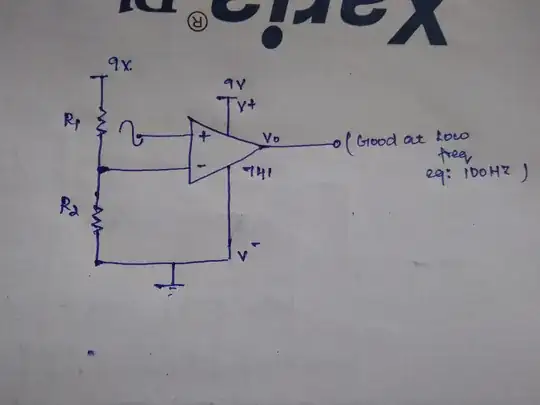 Xaria ® DL
9V
9V
V+
R1
+
Vo
(Good at Low
freq
eg: 100Hz)
-
741
R2
V-